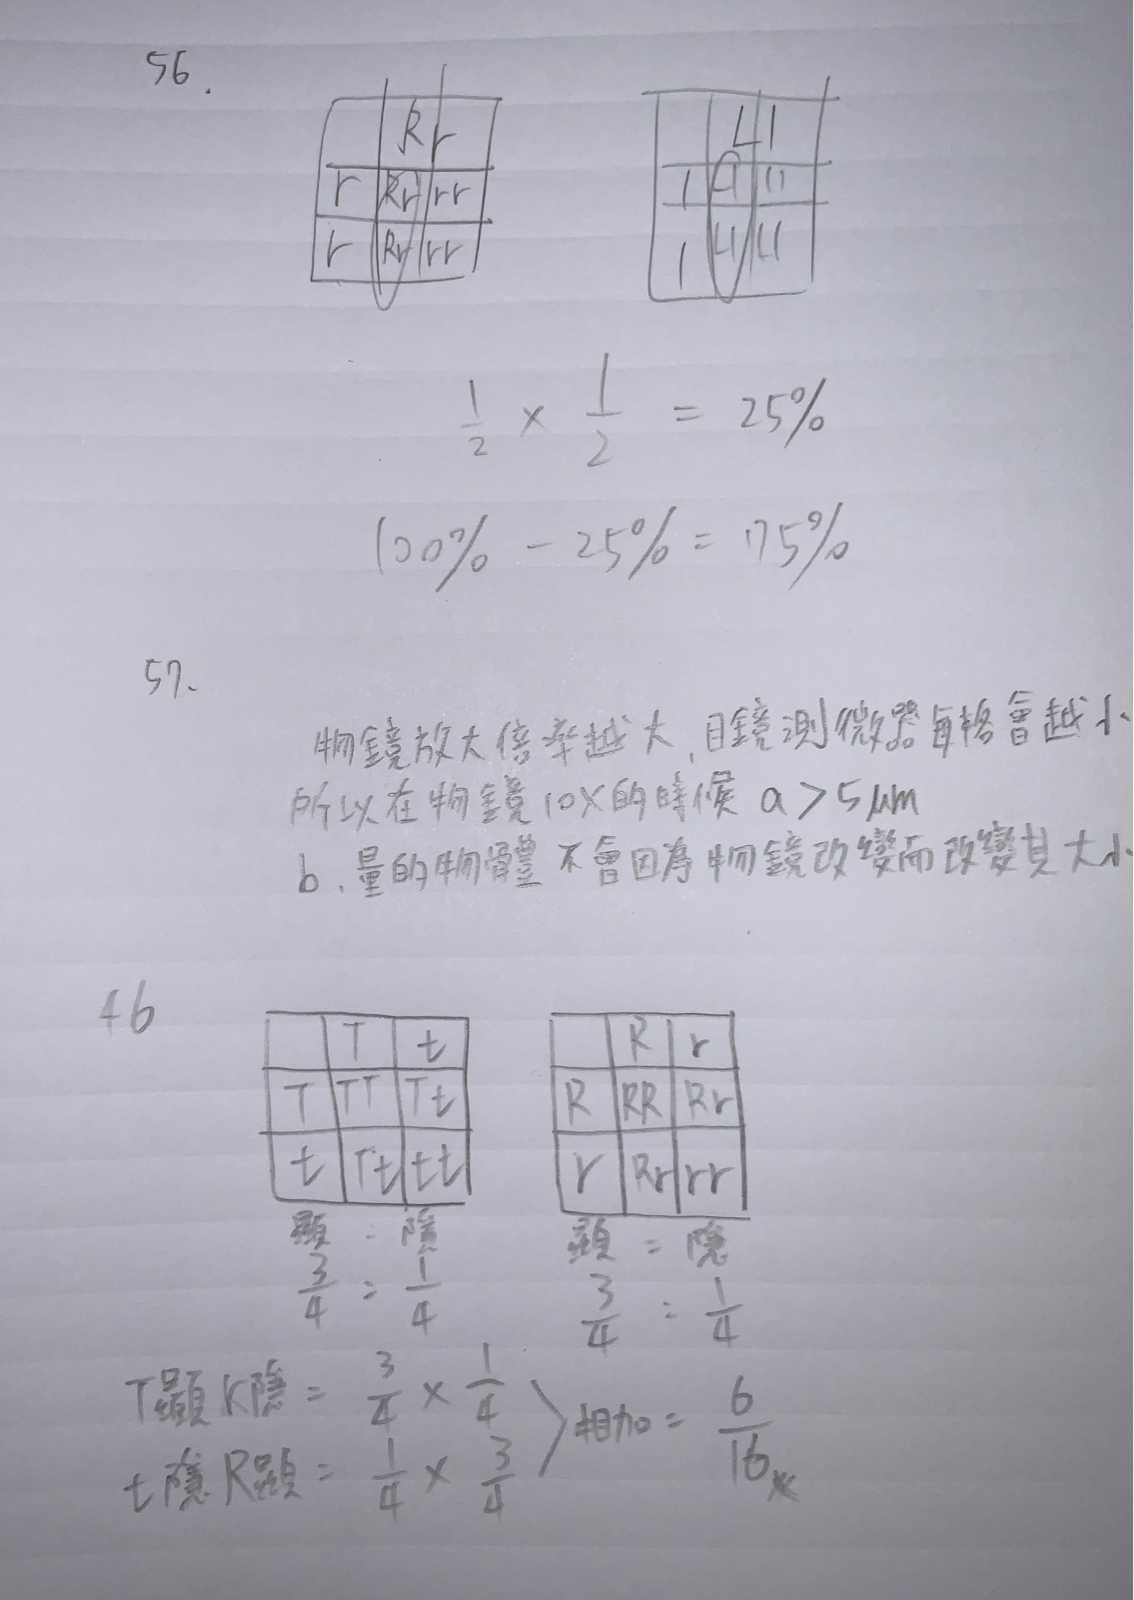 56.
R r
r Rr rr
r Rr rr
L l
l Ll ll
l Ll ll
1/2 × 1/2 = 25%
100% - 25% = 75%
57.
物鏡放大倍率越大,目鏡測微器每格會越小
所以在物鏡10X的時候 a > 5μm
b. 量的物體不會因為物鏡改變而改變其大小
46
T t
T TT Tt
t Tt tt
顯 : 隱
3/4 : 1/4
R r
R RR Rr
r Rr rr
顯 = 隱
3/4 : 1/4
T顯R隱 = 3/4 × 1/4
t隱R顯 = 1/4 × 3/4
相加 = 6/16